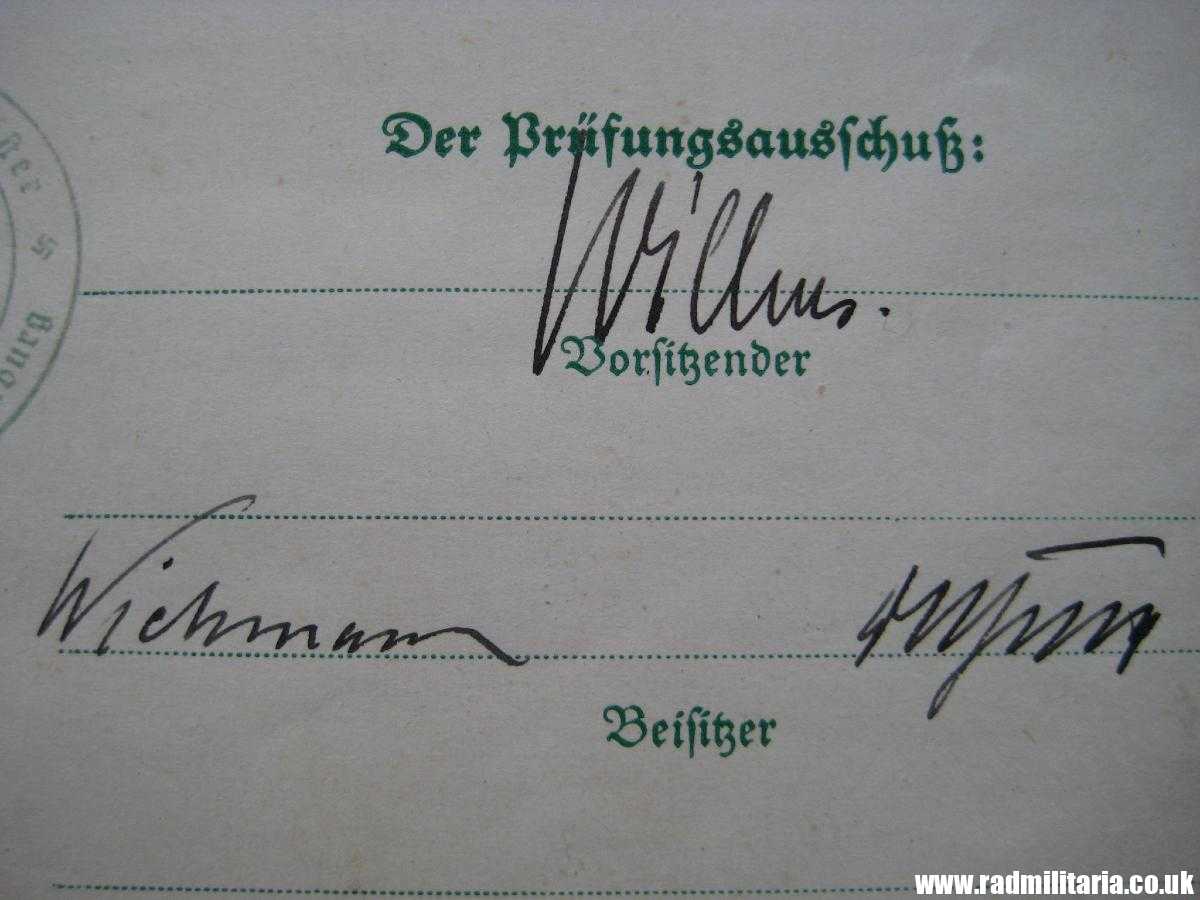 Der Prüfungsausschuß:
Willms.
Vorsitzender
Wichmann
Beisitzer
www.radmilitaria.co.uk